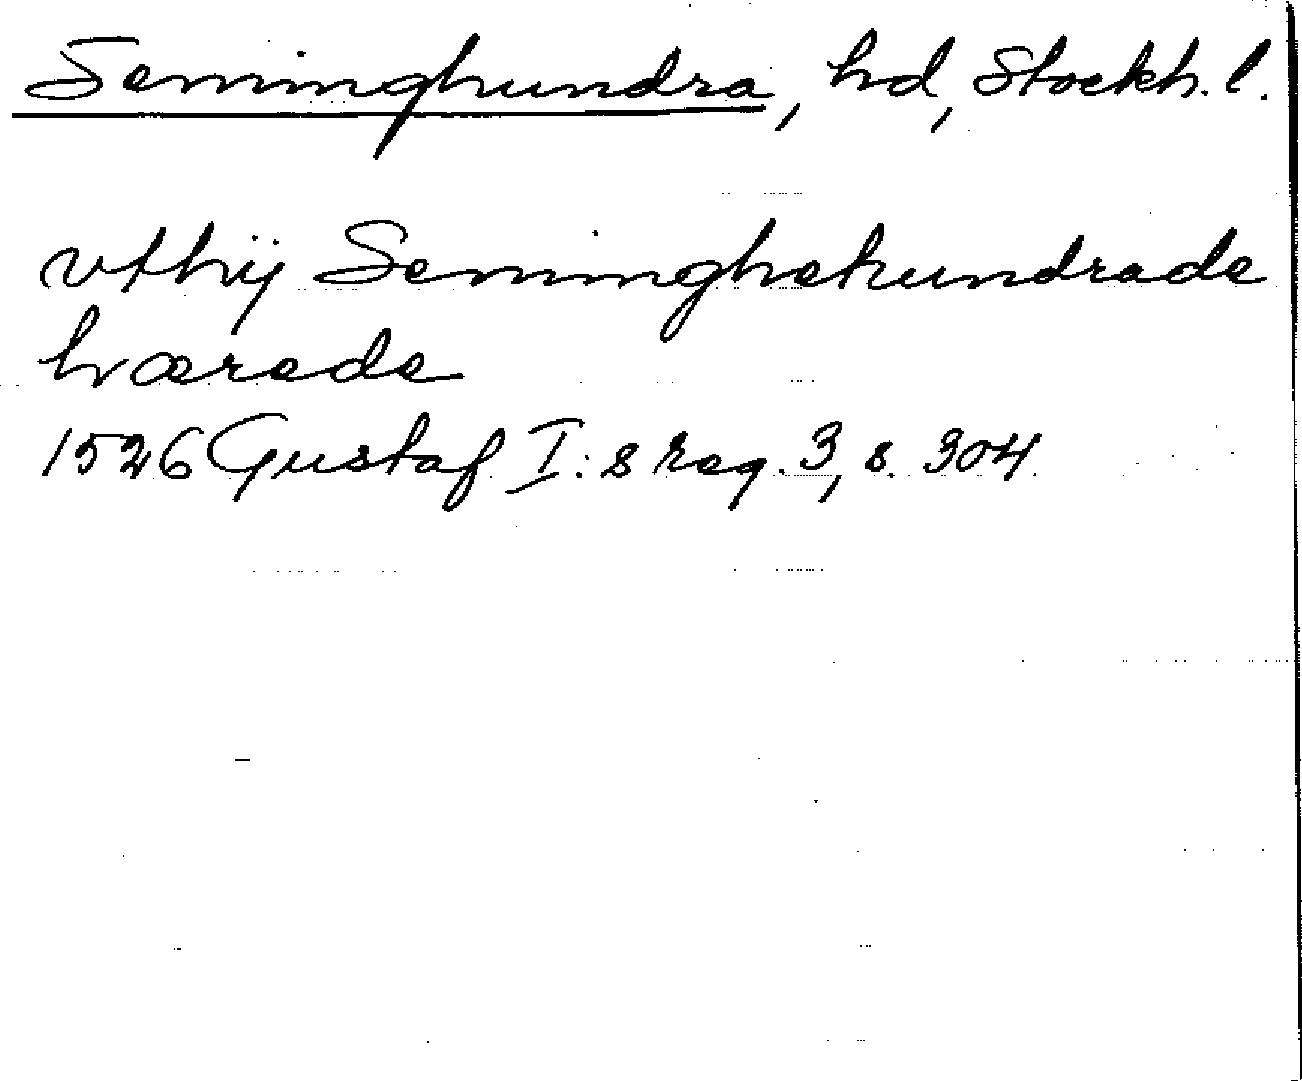 Seminghundra, hd, Stockh. l.
vthij Seminghehundrade
hværede
1526 Gustaf I:s reg. 3, s. 304